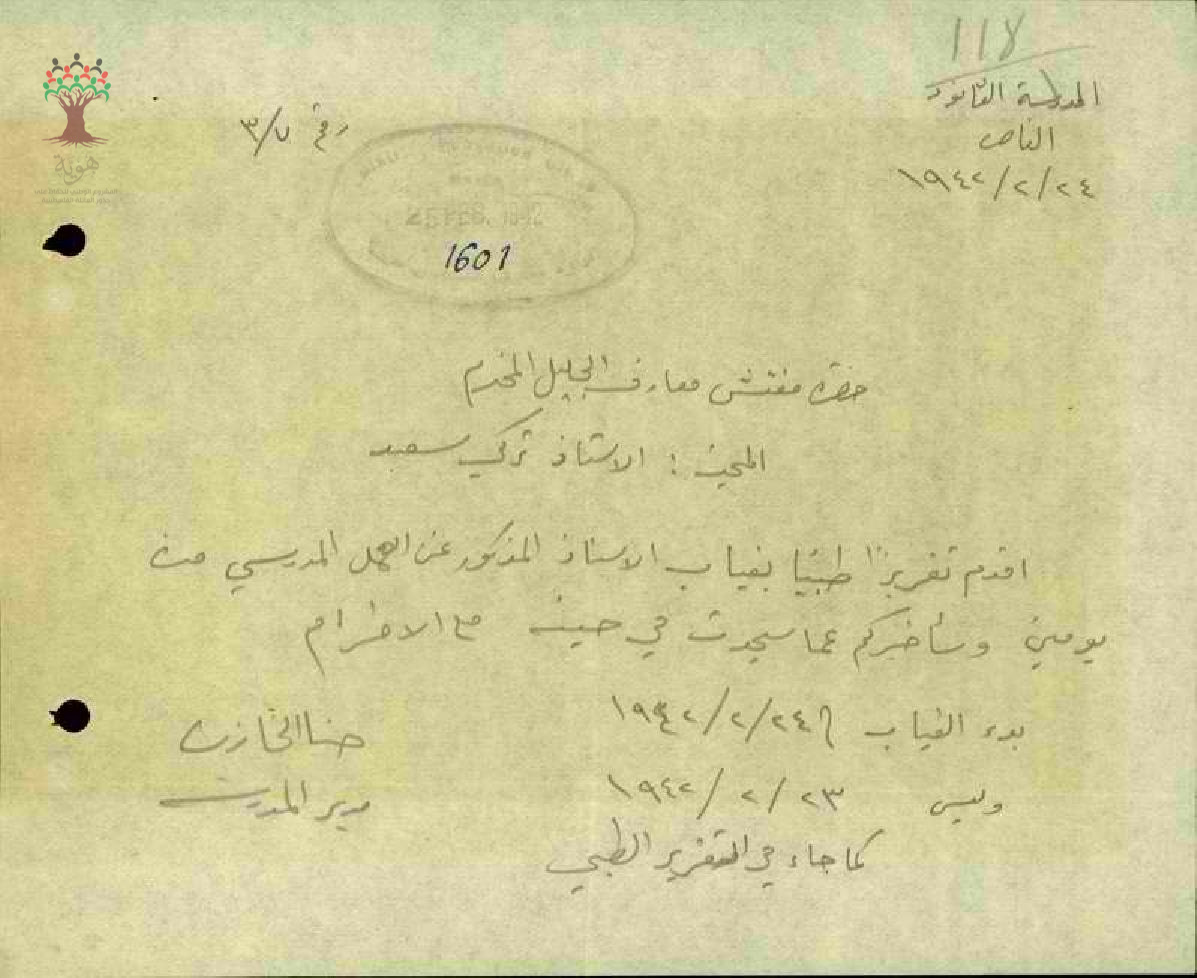 118
المدرسة الثانوية
الناصرة
٢٤/٢/١٩٤٢
رقم ٣/٧
25 FEB. 1942
1601
هوية
حضرة مفتش معارف الجليل المحترم
المبحث : الاستاذ تركي سعيد
اقدم تقريرًا طبيًا بغياب الاستاذ المذكور عن العمل المدرسي مدة
يومين وسأخبركم عما سيحدث في حينه مع الاحترام
بدء الغياب ٢٤/٢/١٩٤٢
وليس ٢٣/٢/١٩٤٢
كما جاء في التقرير الطبي
حنا الخازن
مدير المدرسة